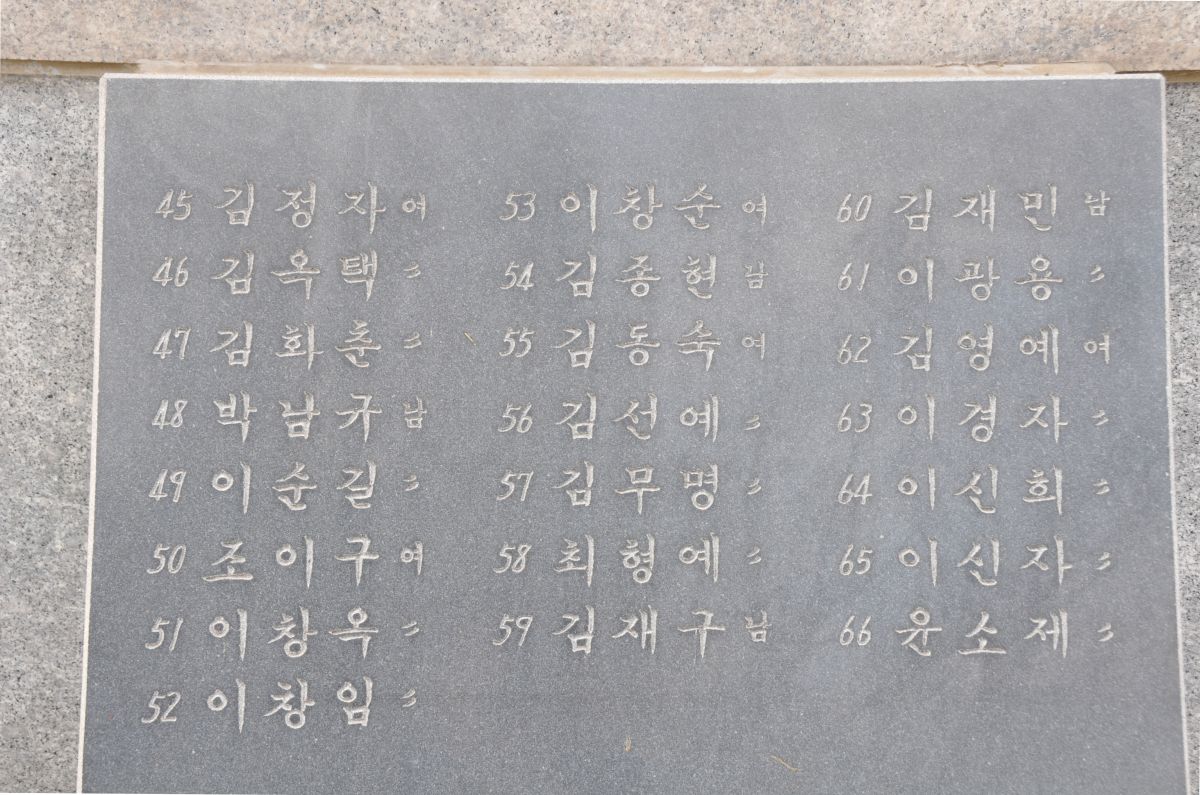 45 김정자 여
46 김옥택 〃
47 김화춘 〃
48 박남규 남
49 이순길 〃
50 조이구 여
51 이창옥 〃
52 이창임 〃
53 이창순 여
54 김종현 남
55 김동숙 여
56 김선예 〃
57 김무명 〃
58 최형예 〃
59 김재구 남
60 김재민 남
61 이광용 〃
62 김영예 여
63 이경자 〃
64 이신희 〃
65 이신자 〃
66 윤소제 〃